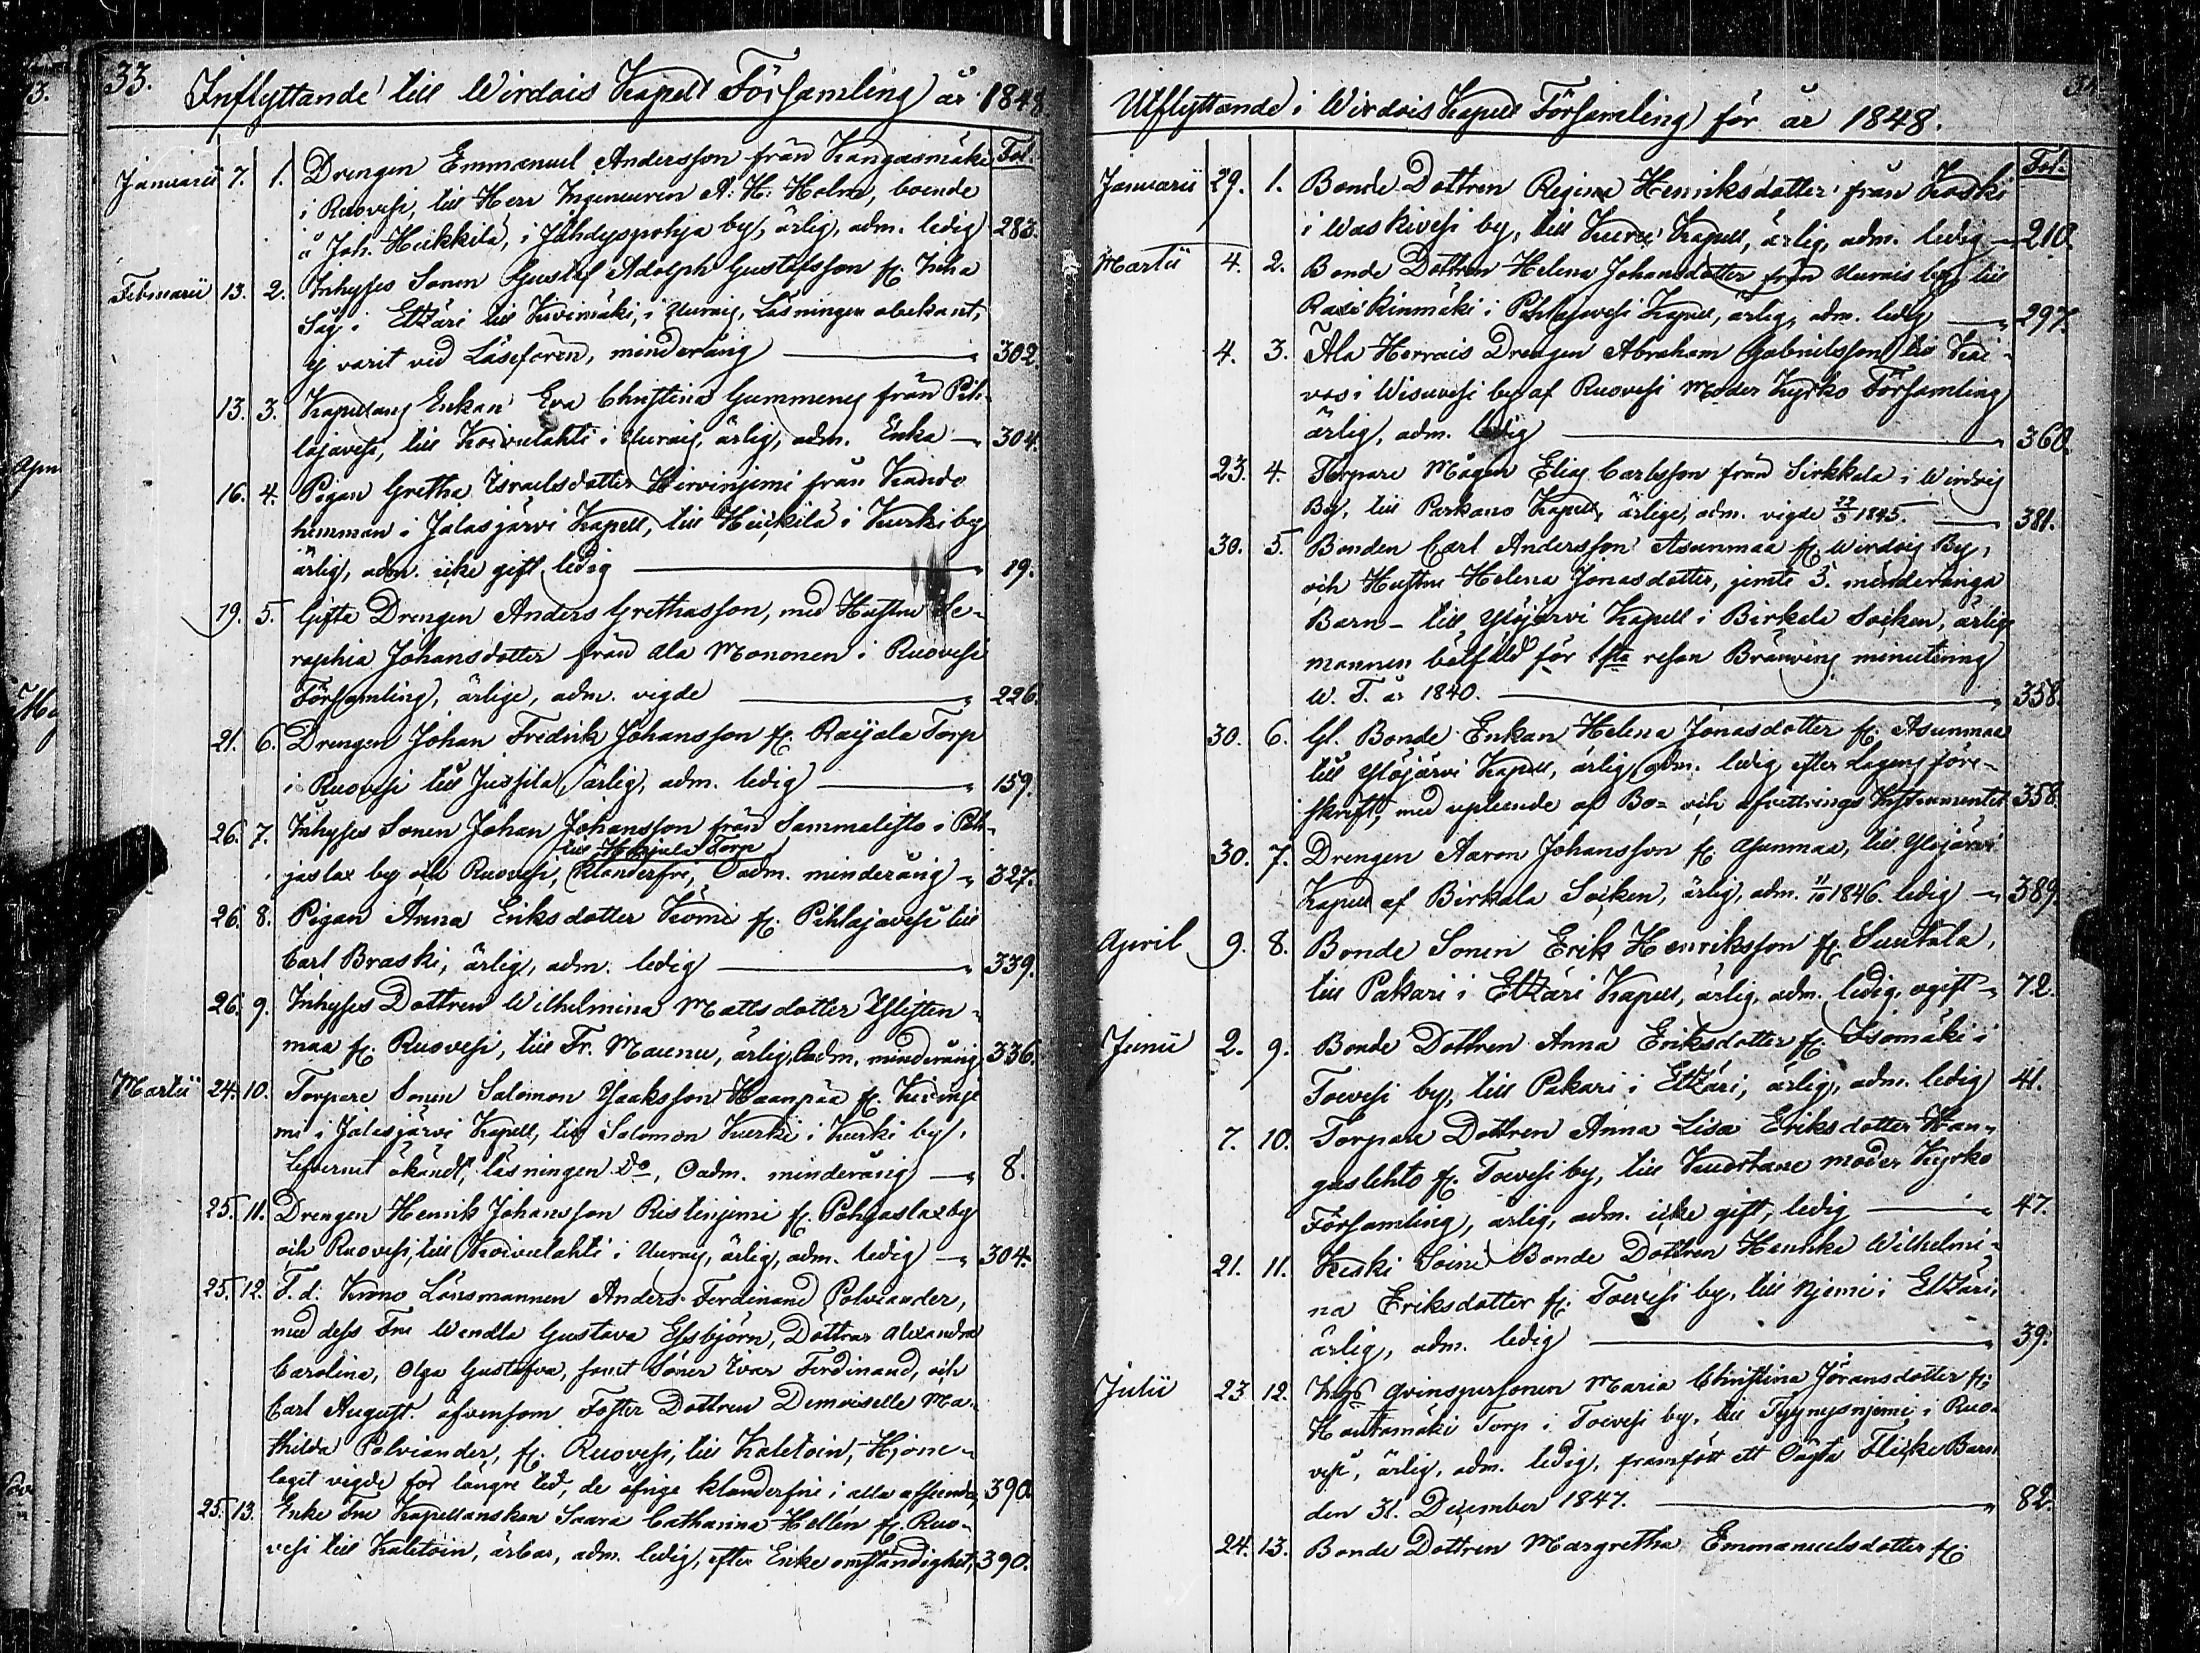 33.
Inflyttande till Wirdois Kapell Församling år 1848.
Fol.
Januarii 7. 1. Drengen Emmanuel Andersson från Kangasmäki
i Ruovesi, till Herr Ingenieuren A. H. Holm, boende
å Joh. Heikkilä, i Jähdyspohja by, ärlig, adm. ledig 283.
Februarii 13. 2. Inhyses Sonen Gustaf Adolph Gustafsson fr. Inha
Såg i Etzäri till Kivimäki, i Uurais, Läsningen obekant,
ej varit vid Läseförh, minderårig 302.
13. 3. Kapellans Enkan Eva Christina Gummerus från Pih-
lajavesi, till Koivulahti i Uurais, ärlig, adm. Enka 304.
16. 4. Pigan Gretha Israelsdotter Hirvinjemi från Kando
hemman i Jalasjärvi Kapell, till Heikkilä i Kurki by
ärlig, adm. icke gift, ledig 19.
19. 5. Gifta Drengen Anders Grethasson, med Hustru Se-
raphia Johansdotter från Ala Mononen i Ruovesi
Församling, ärlige, adm. vigde 226.
21. 6. Drengen Johan Fredrik Johansson fr. Raijala Torp
i Ruovesi till Jussila, ärlig, adm. ledig 159.
26. 7. Inhyses Sonen Johan Johansson från Sammalisto i Poh-
till Harjula Torp
jaslax by och Ruovesi, klanderfri, Oadm. minderårig 327.
26. 8. Pigan Anna Eriksdotter Kömi fr. Pihlajavesi till
Carl Braski, ärlig, adm. ledig 339.
26. 9. Inhyses Dottren Wilhelmina Mattsdotter Ylisten-
maa fr. Ruovesi, till Fr. Maunu, ärlig, Oadm. minderårig 336.
Martii 24. 10. Torpare Sonen Salomon Isaksson Haanpää fr.
mi i Jalasjärvi Kapell, till Salomon Kurki i Kurki by,
lefvernet okändt, läsningen Do, Oadm. minderårig 8.
25. 11. Drengen Henrik Johansson Ristinjemi fr. Pohjaslax by
och Ruovesi, till Koivulahti i Uurais, ärlig, adm. ledig 304.
25. 12. F. d. Krono Länsmannen Anders Ferdinand Polviander,
med dess Fru Wendla Gustava Essbjörn, Döttrar Alexandra
Carolina, Olga Gustafva, samt Söner Ivar Ferdinand, och
Carl August, äfvensom Foster Dottren Demoiselle Ma-
thilda Polviander, fr. Ruovesi, till Kaletoin, Hjone-
laget vigde för längre tid, de öfrige klanderfrie i alla afseende, 390.
25. 13. Enke Fru Kapellanskan Saara Catharina Hellén fr. Ruo-
vesi till Kaletoin, ärbar, adm. ledig, efter Enke omständighet, 390.
Utflyttande i Wirdois Kapell Församling för år 1848.
Fol.
Januarii 29. 1. Bonde Dottren Regina Henriksdotter från Koski
i Waskivesi by, till Kuru Kapell, ärlig, adm. ledig 210.
Martii 4. 2. Bonde Dottren Helena Johansdotter från Uurais by, till
Raiskinmäki i Pihlajavesi Kapell, ärlig, adm. ledig 297.
4. 3. Ala Herrais Drengen Abraham Gabrielsson till Kai-
vos i Wisuvesi by af Ruovesi Moder Kyrko Församling
ärlig, adm. ledig 360.
23. 4. Torpare Mågen Elias Carlsson från Sirkkala i Wirdois
By, till Parkano Kapell, ärlige, adm. vigde 23/3 1845. 381.
30. 5. Bonden Carl Andersson Asunmaa fr. Wirdois By,
och Hustru Helena Jonasdotter, jemte 3. minderåriga
Barn - till Ylöjärvi Kapell i Birkala Socken, ärlige
mannen bötfäld för 1sta resan Bränvins minutering
W. T. år 1840. 358.
30. 6. Gl. Bonde Enkan Helena Jonasdotter fr. Asunmaa
till Ylöjärvi Kapell, ärlig, adm. ledig efter Lagens före-
skrift, med upteende af Bo- och afvittrings Instrumentet 358.
30. 7. Drengen Aaron Johansson fr. Asunmaa, till Ylöjärvi
Kapell af Birkala Socken, ärlig, adm. 11/10 1846. ledig 389.
April 9. 8. Bonde Sonen Erik Henriksson fr. Suutala,
till Pakari i Etzäri Kapell, ärlig, adm. ledig, ogift 72.
Junii 2. 9. Bonde Dottren Anna Eriksdotter fr. Isomäki i
Toivesi by, till Pakari i Etzäri, ärlig, adm. ledig 41.
7. 10. Torpare Dottren Anna Lisa Eriksdotter Kan-
gaslehto fr. Toivesi by, till Kuortane moder Kyrko
Församling, ärlig, adm. icke gift, ledig 47.
21. 11. Keski Soini Bonde Dottren Henrika Wilhelmi-
na Eriksdotter fr. Toivesi by, till Njemi i Etzäri,
ärlig, adm. ledig 39.
Julii 23. 12. Inhs Qvinspersonen Maria Christina Jöransdotter fr.
Hautamäki Torp i Toivesi by, till Tyynysnjemi i Ruo-
vesi, ärlig, adm. ledig, framfött ett Oägta Flicke Barn
den 31. December 1847. 82.
24. 13. Bonde Dottren Margretha Emmanuelsdotter fr.